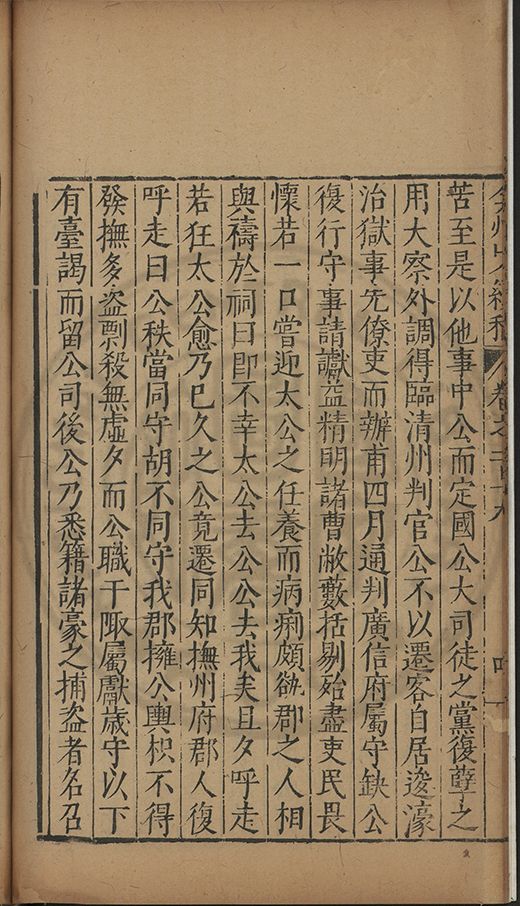 弇州山人續稿 卷之
苦至是以他事中公而定國公大司徒之黨復孽之
用大察外調得臨清州判官公不以遷客自居逡濠
治獄事先僚吏而辦甫四月通判廣信府屬守缺公
復行守事請讞益精明諸曹敝藪括剔殆盡吏民畏
懷若一口嘗迎太公之任養而病痢頗郡之人相
與禱於祠曰即不幸太公去公公去我矣旦夕呼走
若狂太公愈乃已久之公竟遷同知撫州府郡人復
呼走曰公秩當同守胡不同守我郡擁公輿枳不得
發撫多盜剽殺無虛夕而公職于陬屬獻歲守以下
有臺謁而留公司後公乃悉籍諸豪之捕盜者名召